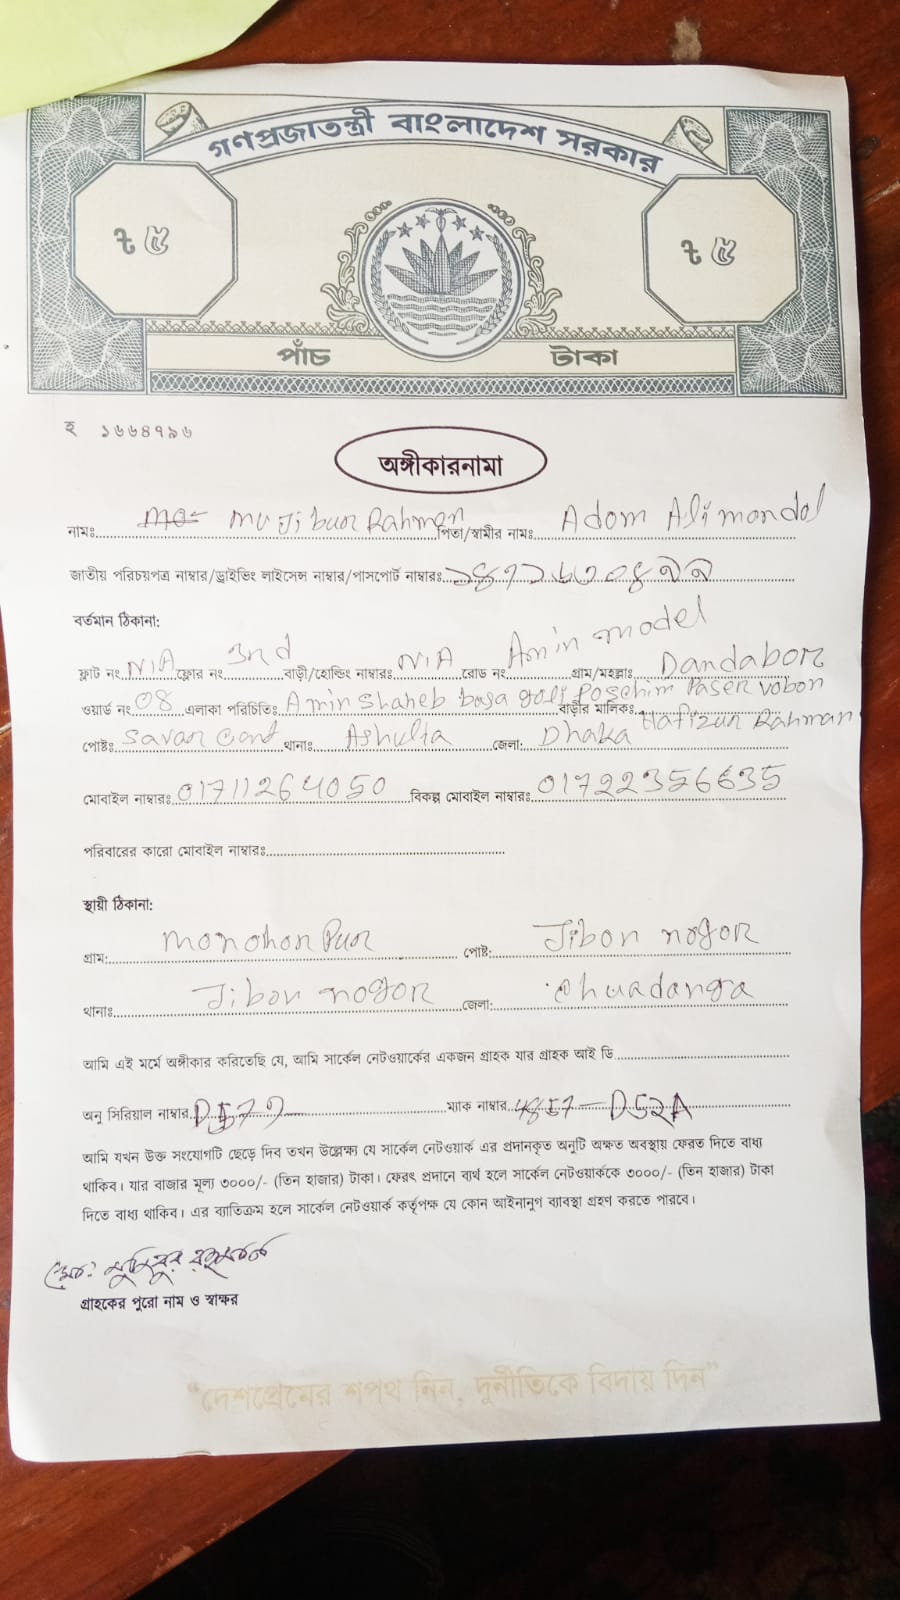 গণপ্রজাতন্ত্রী বাংলাদেশ সরকার
৳ ৫ ৳ ৫
পাঁচ টাকা
হ ১৬৬৪৭৯৬
অঙ্গীকারনামা
নামঃ Mujibur Rahman পিতা/স্বামীর নামঃ Adom Ali mondol
জাতীয় পরিচয়পত্র নাম্বার/ড্রাইভিং লাইসেন্স নাম্বার/পাসপোর্ট নাম্বারঃ
বর্তমান ঠিকানা:
ফ্লাট নং N/A ফ্লোর নং 3nd বাড়ী/হোল্ডিং নাম্বারঃ N/A রোড নং Amin model গ্রাম/মহল্লাঃ Dandabor
ওয়ার্ড নং 08 এলাকা পরিচিতিঃ Amin Shaheb basa goli Poschim Paser vobon বাড়ীর মালিকঃ Hafizur Rahman
পোষ্টঃ Savar Cant থানাঃ Ashulia জেলা: Dhaka
মোবাইল নাম্বারঃ 01711264050 বিকল্প মোবাইল নাম্বারঃ 01722356635
পরিবারের কারো মোবাইল নাম্বারঃ
স্থায়ী ঠিকানা:
গ্রাম: Monohor Pur পোষ্ট: Jibon nogor
থানাঃ Jibon nogor জেলা: Chuadanga
আমি এই মর্মে অঙ্গীকার করিতেছি যে, আমি সার্কেল নেটওয়ার্কের একজন গ্রাহক যার গ্রাহক আই ডি
অনু সিরিয়াল নাম্বার ম্যাক নাম্বার 4857-D52A
আমি যখন উক্ত সংযোগটি ছেড়ে দিব তখন উল্লেক্ষ্য যে সার্কেল নেটওয়ার্ক এর প্রদানকৃত অনুটি অক্ষত অবস্থায় ফেরত দিতে বাধ্য
থাকিব। যার বাজার মূল্য ৩০০০/- (তিন হাজার) টাকা। ফেরৎ প্রদানে ব্যর্থ হলে সার্কেল নেটওয়ার্ককে ৩০০০/- (তিন হাজার) টাকা
দিতে বাধ্য থাকিব। এর ব্যাতিক্রম হলে সার্কেল নেটওয়ার্ক কর্তৃপক্ষ যে কোন আইনানুগ ব্যাবস্থা গ্রহণ করতে পারবে।
মোঃ মুজিবুর রহমান
গ্রাহকের পুরো নাম ও স্বাক্ষর
“দেশপ্রেমের শপথ নিন, দুর্নীতিকে বিদায় দিন”